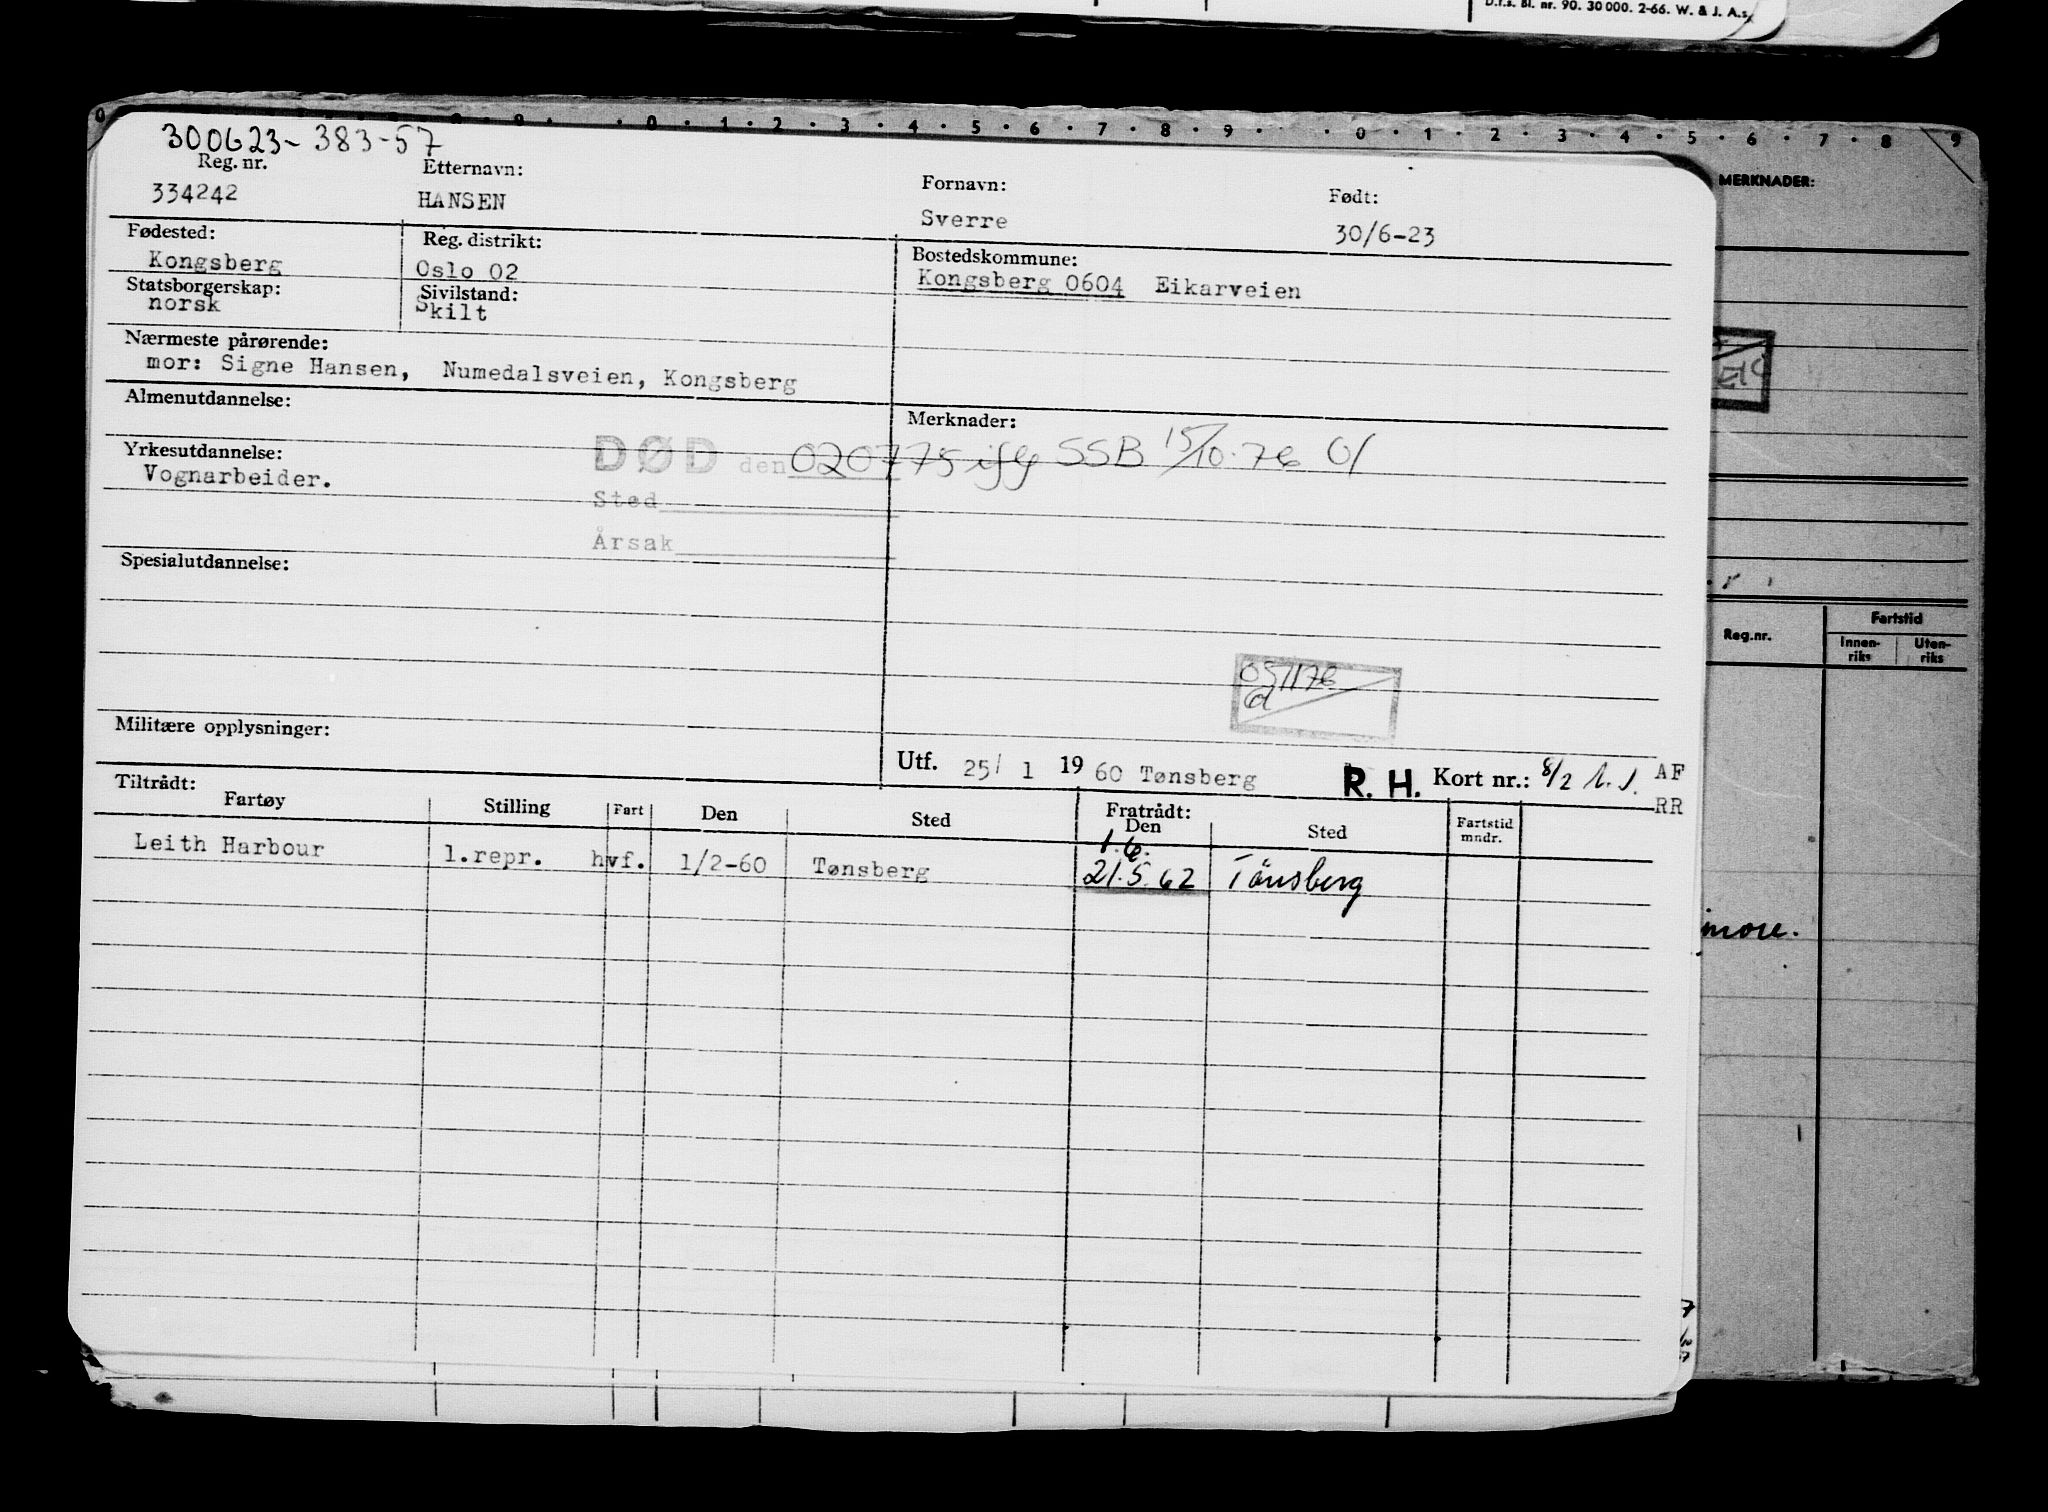 D.f.s. Bl. nr. 90. 30 000. 2-66. W. & J. A.s.
0 1 2 3 4 5 6 7 8 9 0 1 2 3 4 5 6 7 8 9
300623-383-57
Reg. nr. Etternavn: Fornavn: Født:
334242 HANSEN Sverre 30/6-23
MERKNADER:
Fødested: Reg. distrikt: Bostedskommune:
Kongsberg Oslo 02 Kongsberg 0604 Eikarveien
Statsborgerskap: Sivilstand:
norsk Skilt
Nærmeste pårørende:
mor: Signe Hansen, Numedalsveien, Kongsberg
Almenutdannelse: Merknader:
Yrkesutdannelse: DØD den 020775 iflg SSB 15/10-76
Vognarbeider.
Sted
Årsak
Spesialutdannelse:
Reg.nr. Fartstid
Innen-riks Uten-riks
051176
Militære opplysninger:
Utf. 25/ 1 1960 Tønsberg R. H. Kort nr.: 8/2 AF
RR
Tiltrådt: Fratrådt:
Fartøy Stilling Fart Den Sted Den Sted Fartstid mndr.
1.6.
Leith Harbour 1.repr. hvf. 1/2-60 Tønsberg 21.5.62 Tönsberg
more.